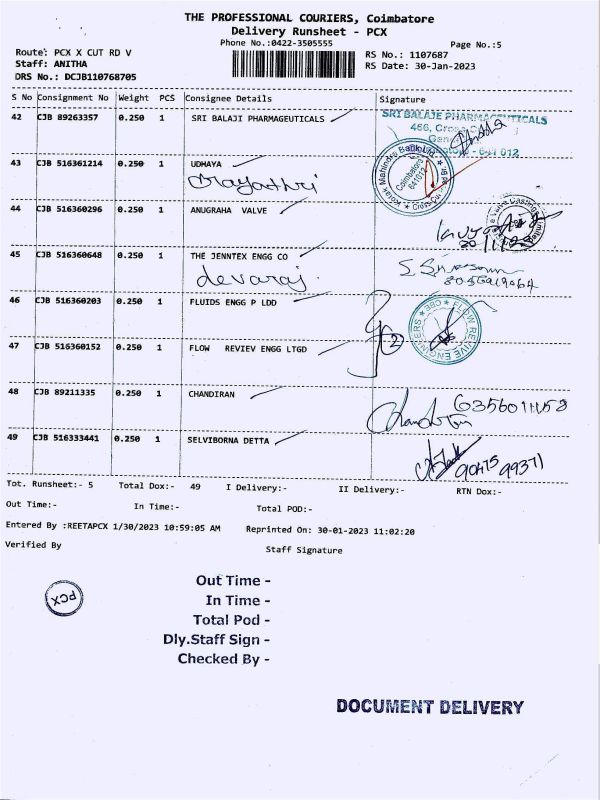 THE PROFESSIONAL COURIERS, Coimbatore
Delivery Runsheet - PCX
Phone No.:0422-3505555
Page No.:5
Route: PCX X CUT RD V
RS No.: 1107687
Staff: ANITHA
RS Date: 30-Jan-2023
DRS No.: DCJB110768705
S No Consignment No Weight PCS Consignee Details Signature
42 CJB 89263357 0.250 1 SRI BALAJI PHARMAGEUTICALS
SRI BALAJE PHARMACEUTICALS
43 CJB 516361214 0.250 1 UDHAYA
Kotak Mahindra Bank Ltd.
Coimbatore
641012
44 CJB 516360296 0.250 1 ANUGRAHA VALVE
45 CJB 516360648 0.250 1 THE JENNTEX ENGG CO
devaraj
46 CJB 516360203 0.250 1 FLUIDS ENGG P LDD
FLOW REVIVE ENGINEERS
CBE
47 CJB 516360152 0.250 1 FLOW REVIEV ENGG LTGD
48 CJB 89211335 0.250 1 CHANDIRAN
49 CJB 516333441 0.250 1 SELVIBORNA DETTA
90475 99371
Tot. Runsheet:- 5 Total Dox:- 49 I Delivery:- II Delivery:- RTN Dox:-
Out Time:- In Time:- Total POD:-
Entered By :REETAPCX 1/30/2023 10:59:05 AM Reprinted On: 30-01-2023 11:02:20
Verified By Staff Signature
PCX
Out Time -
In Time -
Total Pod -
Dly.Staff Sign -
Checked By -
DOCUMENT DELIVERY